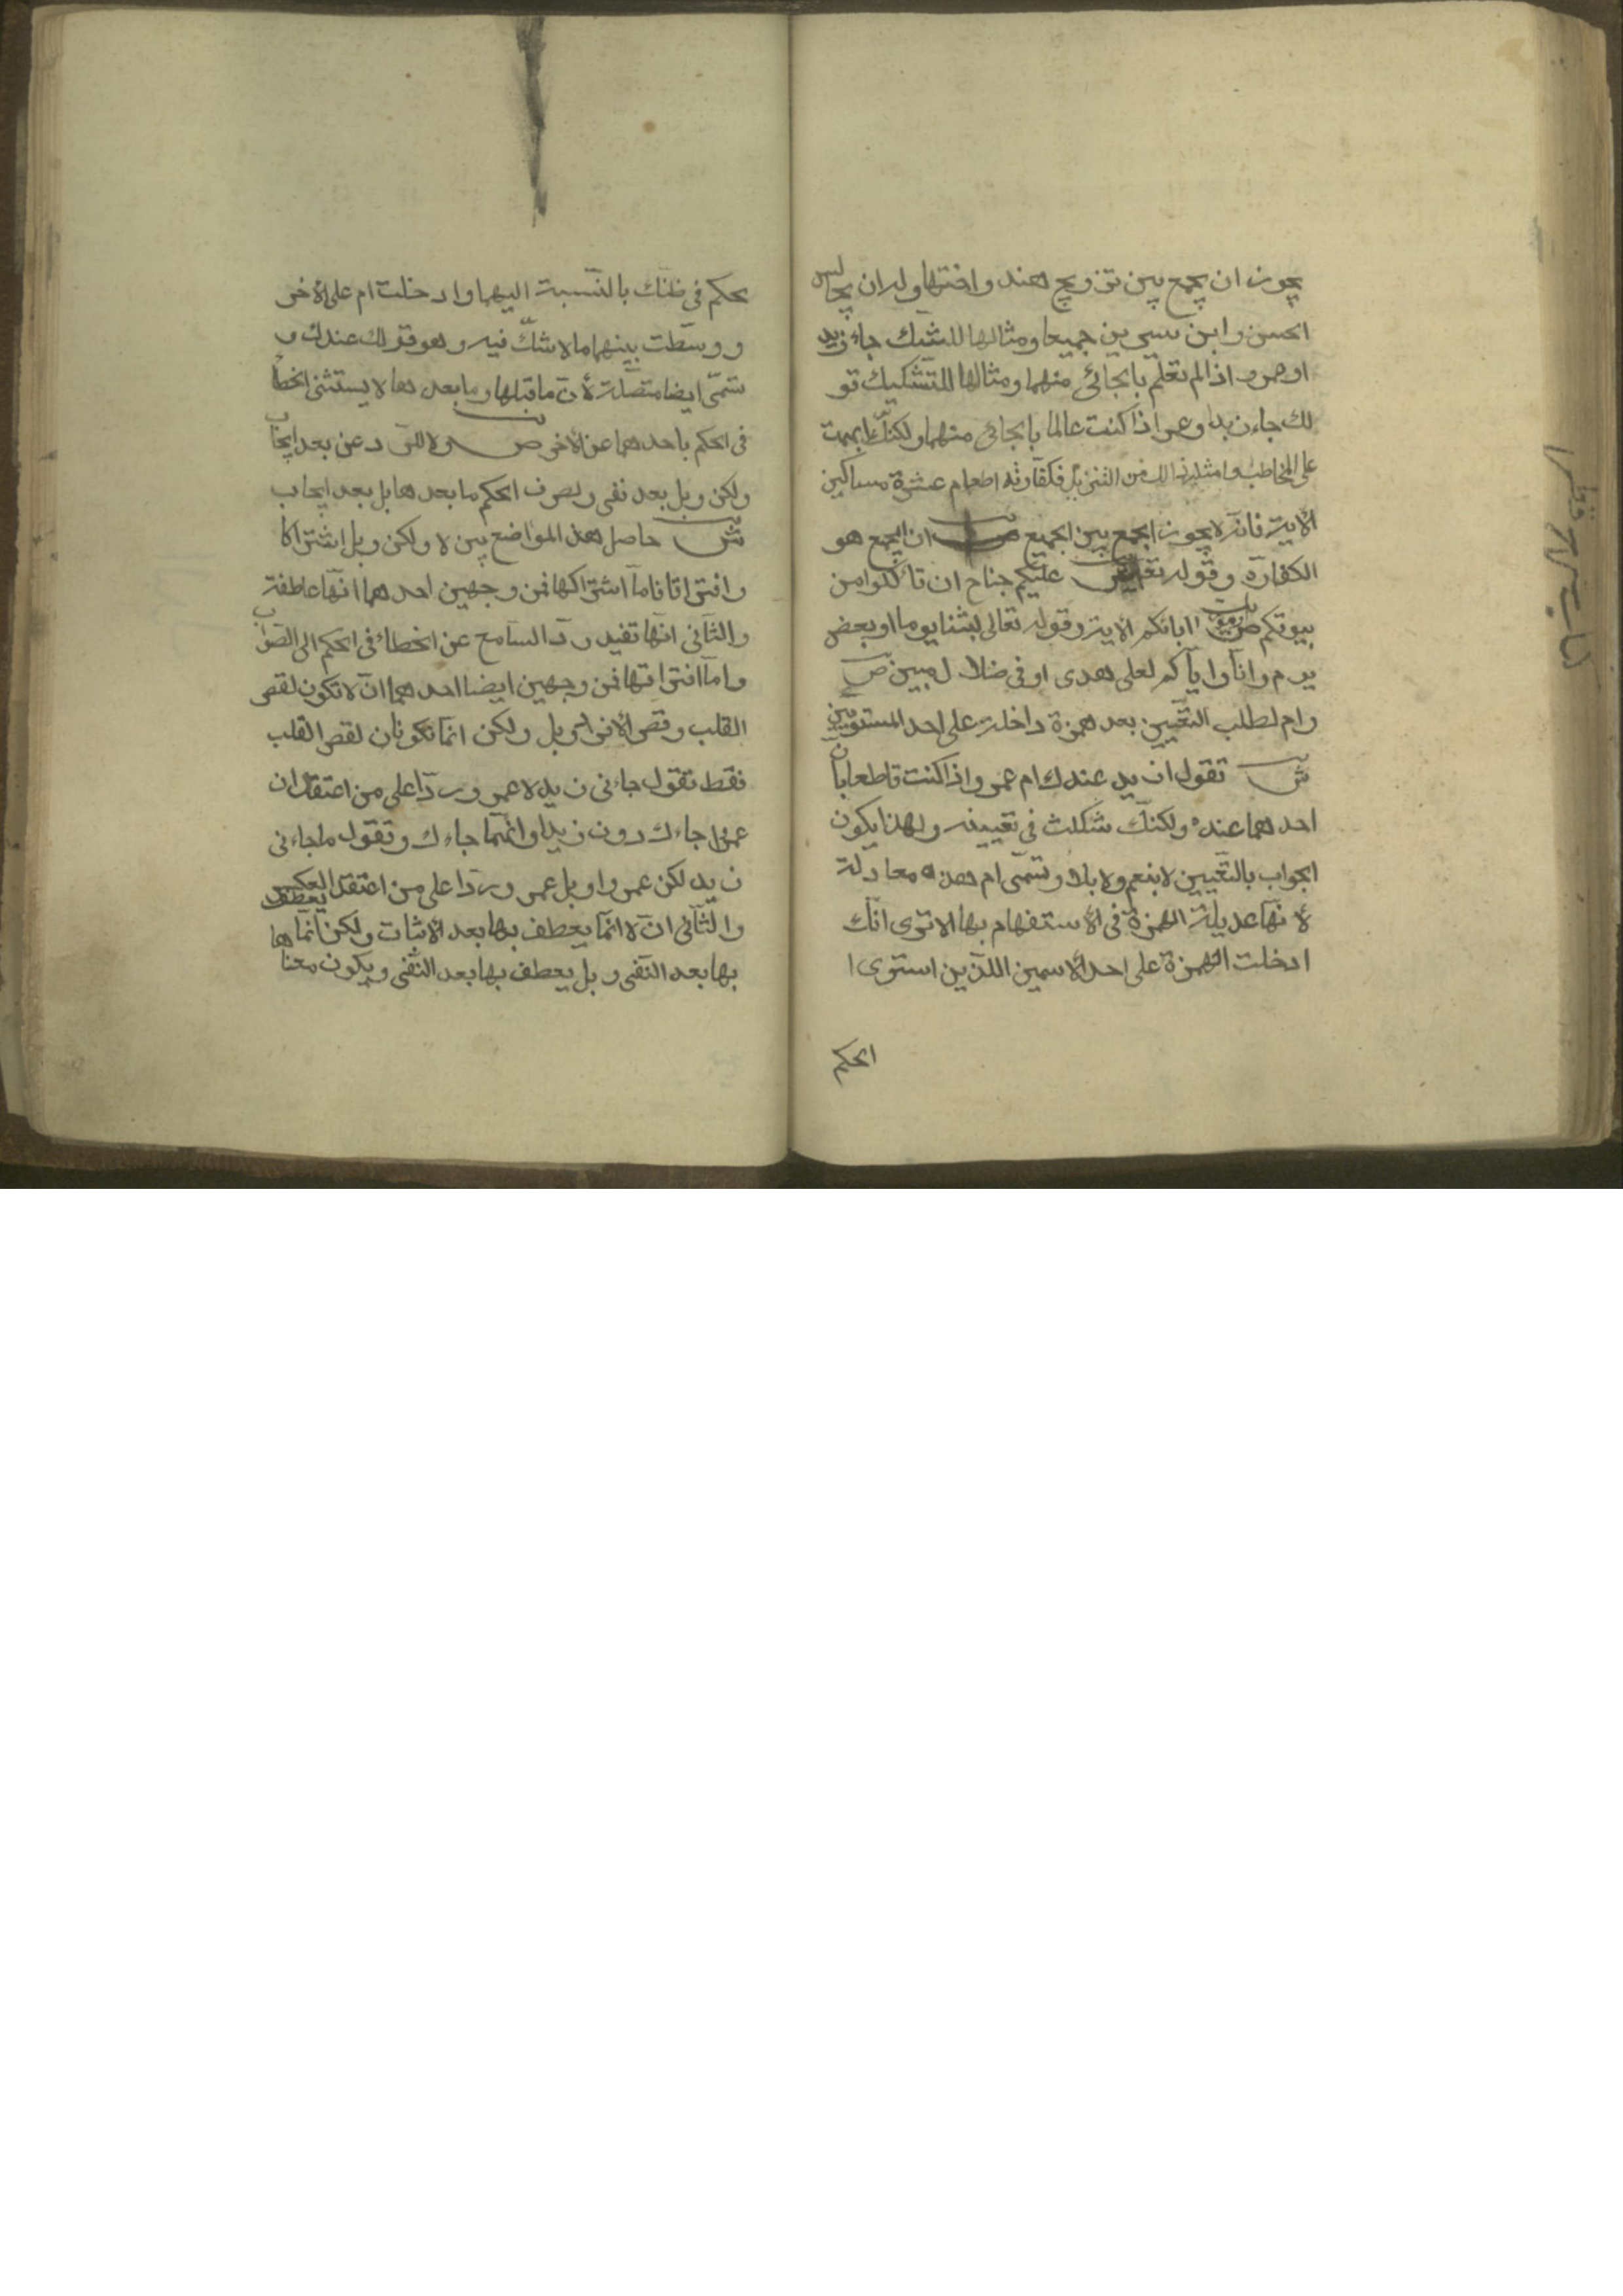 يجوز ان يجمع بين تزويج هند واختها وله ان يجالس
الحسن وابن سيرين جميعا ومثالها للشك جاء زيد
او عمرو اذا لم تعلم بالجائى منهما ومثالها للتشكيك قو
لك جاء زيد او عمرو اذا كنت عالما بالجائى منهما ولكنك ابهمت
على المخاطب وامثلة ذالك من التنزيل فكفارته اطعام عشرة مساكين
الأية فانه لا يجوز الجمع بين الجميع ان الجمع هو
الكفارة وقوله تعالى ليس عليكم جناح ان تأكلوا من
بيوتكم او بيوت ابائكم الاية وقوله تعالى لبثنا يوما او بعض
يوم وانا واياكم لعلى هدى او فى ضلال مبين ص
وام لطلب التعيين بعد همزة داخلة على احد المستويين
ش تقول ازيد عندك ام عمرو اذا كنت قاطعا بان
احدهما عنده ولكنك شككت فى تعيينه ولهذا يكون
الجواب بالتعيين لا بنعم ولا بلا وتسمى ام هذه معادلة
لأنها عديلة الهمزة فى الأستفهام بها الا ترى انك
ادخلت الهمزة على احد الأسمين اللذين استوى ا
الحكم
بحكم فى ظنك بالنسبة اليهما وادخلت ام على الأخر
و وسطت بينهما ما لا شك فيه وهو قولك عندك و
تسمى ايضا متصلة لأن ما قبلها وما بعدها لا يستثنى الخطأ
فى الحكم باحدهما عن الأخر ص ولا للرد عن بعد ايجاب
ولكن وبل بعد نفى ولصرف الحكم ما بعدها بل بعد ايجاب
ش حاصل هذ المواضع بين لا ولكن وبل اشتراكا
وافتراقا فاما اشتراكها فمن وجهين احدهما انها عاطفة
والثانى انها تفيد رد السامع عن الخطاء فى الحكم الى الصواب
واما افتراقها فمن وجهين ايضا احدهما ان لا تكون لقصر
القلب وقصر الأفراد وبل ولكن انما تكونان لقصر القلب
فقط تقول جاءنى زيد لا عمرو ردا على من اعتقد ان
عمرا جاءك دون زيد او انهما جاءك وتقول ما جاءنى
زيد لكن عمرو او بل عمرو ردا على من اعتقد العكس
والثانى ان لا انما يعطف بها بعد الاثبات ولكن انما يعطف
بها بعد النفى وبل يعطف بها بعد النفى ويكون معناها